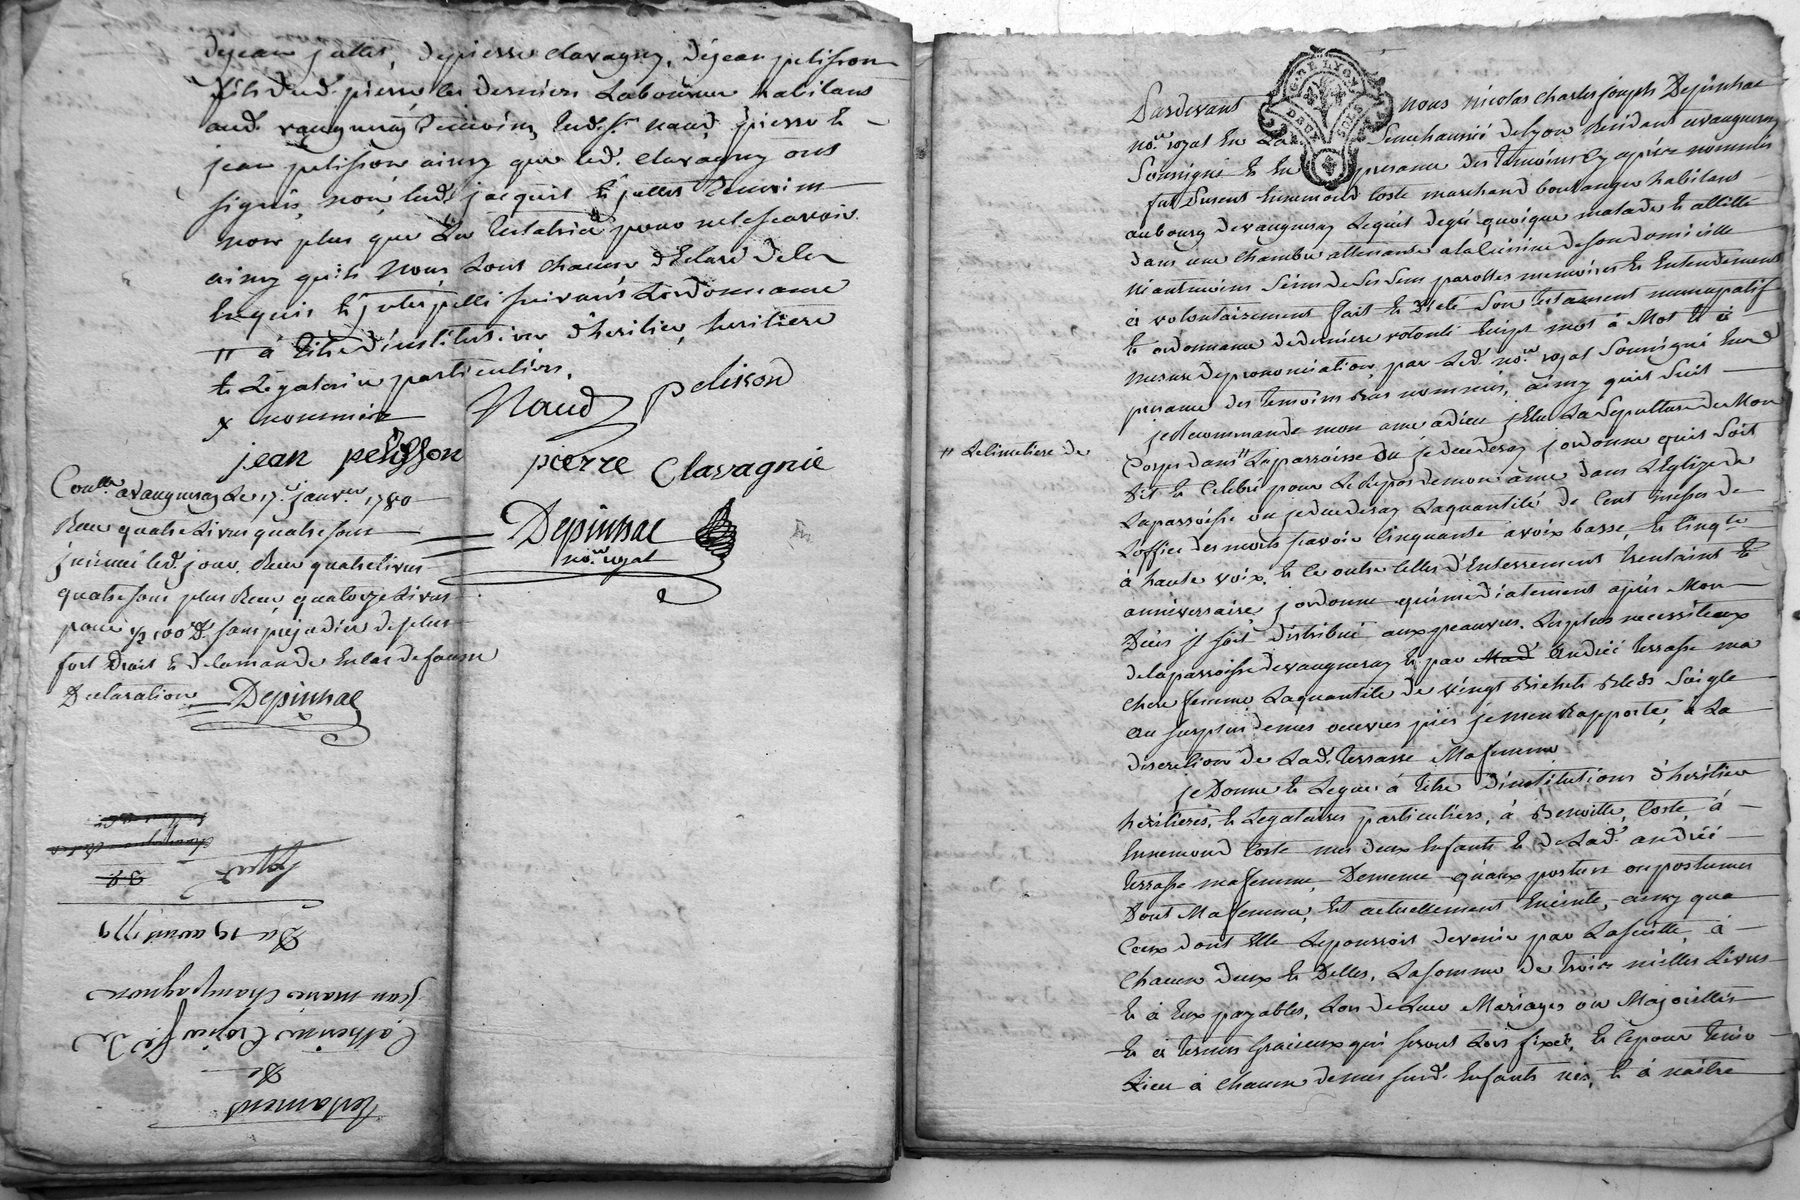 dejean jullet, depierre clavagny, dejean pelisson
fils dud. pierre les derniers Laboureurs habitans
aud. vaugneray Temoins, led. sr. naud, pierre et
jean pelisson ainsy que led. clavagny ont
signés, non led. jacquet et jullet Temoins
non plus que La Testatrice pour ne le scavoir
ainsy qu'ils nous l'ont chacun déclaré de ce
Enquis et interpellé suivant Lordonnance
" à titre d'institution d'heritier, heritiere
et Legataire particuliere,
x nommée
Naud pelisson
jean pelisson pierre Clavagnie
Depinhac
no.re royal
Con.lle a vaugneray Le 17.e janv.er 1780
Reçu quatre Livres quatre sous
insinué led. jour. Reçu quatre livres
quatre sous plus Reçu quatorze Livres
pour sans prejudice de plus
fort Droit et de lamande En cas de fausse
Declaration Depinhac
Testament
De
Catherine fe. de
jean marie Champagnon
Du 19 avril 1779
32
Pardevant nous nicolas charles joseph Depinhac
no.re royal En La Senechaussée de Lyon Residant a vaugneray
Soussigné Et En presence des temoins cy après nommés
fut present Ennemond Coste marchand boulanger habitant
au bourg de vaugneray Lequel degré quoique malade et allitté
dans une chambre attenante a la Cuisine de son domicille
néantmoins Sain de ses sens parolles memoires et Entendement
a volontairement fait et dicté Son testament nuncupatif
et ordonnance de derniere volonté Ecript mot à Mot et à
mesure de prononciation, par Led. no.re royal Soussigné En
presence des temoins Bas nommés, ainsy qu'il suit
je Recommande mon ame à dieu j'Elis La Sepulture de Mon
" Le Cimetiere de
Corps dans " La parroisse du je decederay j ordonne qu'il Soit
Dit et Celebré pour Le Repos de mon ame dans L'Eglize de
La parroisse ou je decederay La quantité de Cent messes de
Loffice des morts scavoir Cinquante a voix basse, et Cinq.te
à haute voix, et ce outre Celles d'Enterrement trentaine et
anniversaire, j ordonne qu'imediatement après Mon
Decès il Soit distribué aux pauvres, Les plus necessiteux
de la parroisse de vaugneray et par Mad Andrée terrasse ma
chere femme La quantité de vingt Bichets Bled Seigle
Au surplus de mes oeuvres pies je m'en Rapporte, à La
discretion de Lad. terrasse Ma femme
je Donne et Legue à titre d'institutions d'heritier
heritieres, et Legataires particuliers, à Benoitte, Coste, à
Ennemond Coste mes deux Enfants et de Lad. andrée
terrasse ma femme, De meme qu'aux posteres ou postumes
Dont Ma femme, Est actuellement Enceinte, ainsy qua
Ceux dont Elle Le pourroit devenir par La suitte, à
Chacun deux et Delles, La somme de trois milles Livres
Et à Eux payables, Lors de Leur Mariages ou Majorittés
Et à termes Gracieux qui seront Lors fixés, Et ce pour tenir
Lieu à Chacun de mes susd. Enfants nés, Et à naître